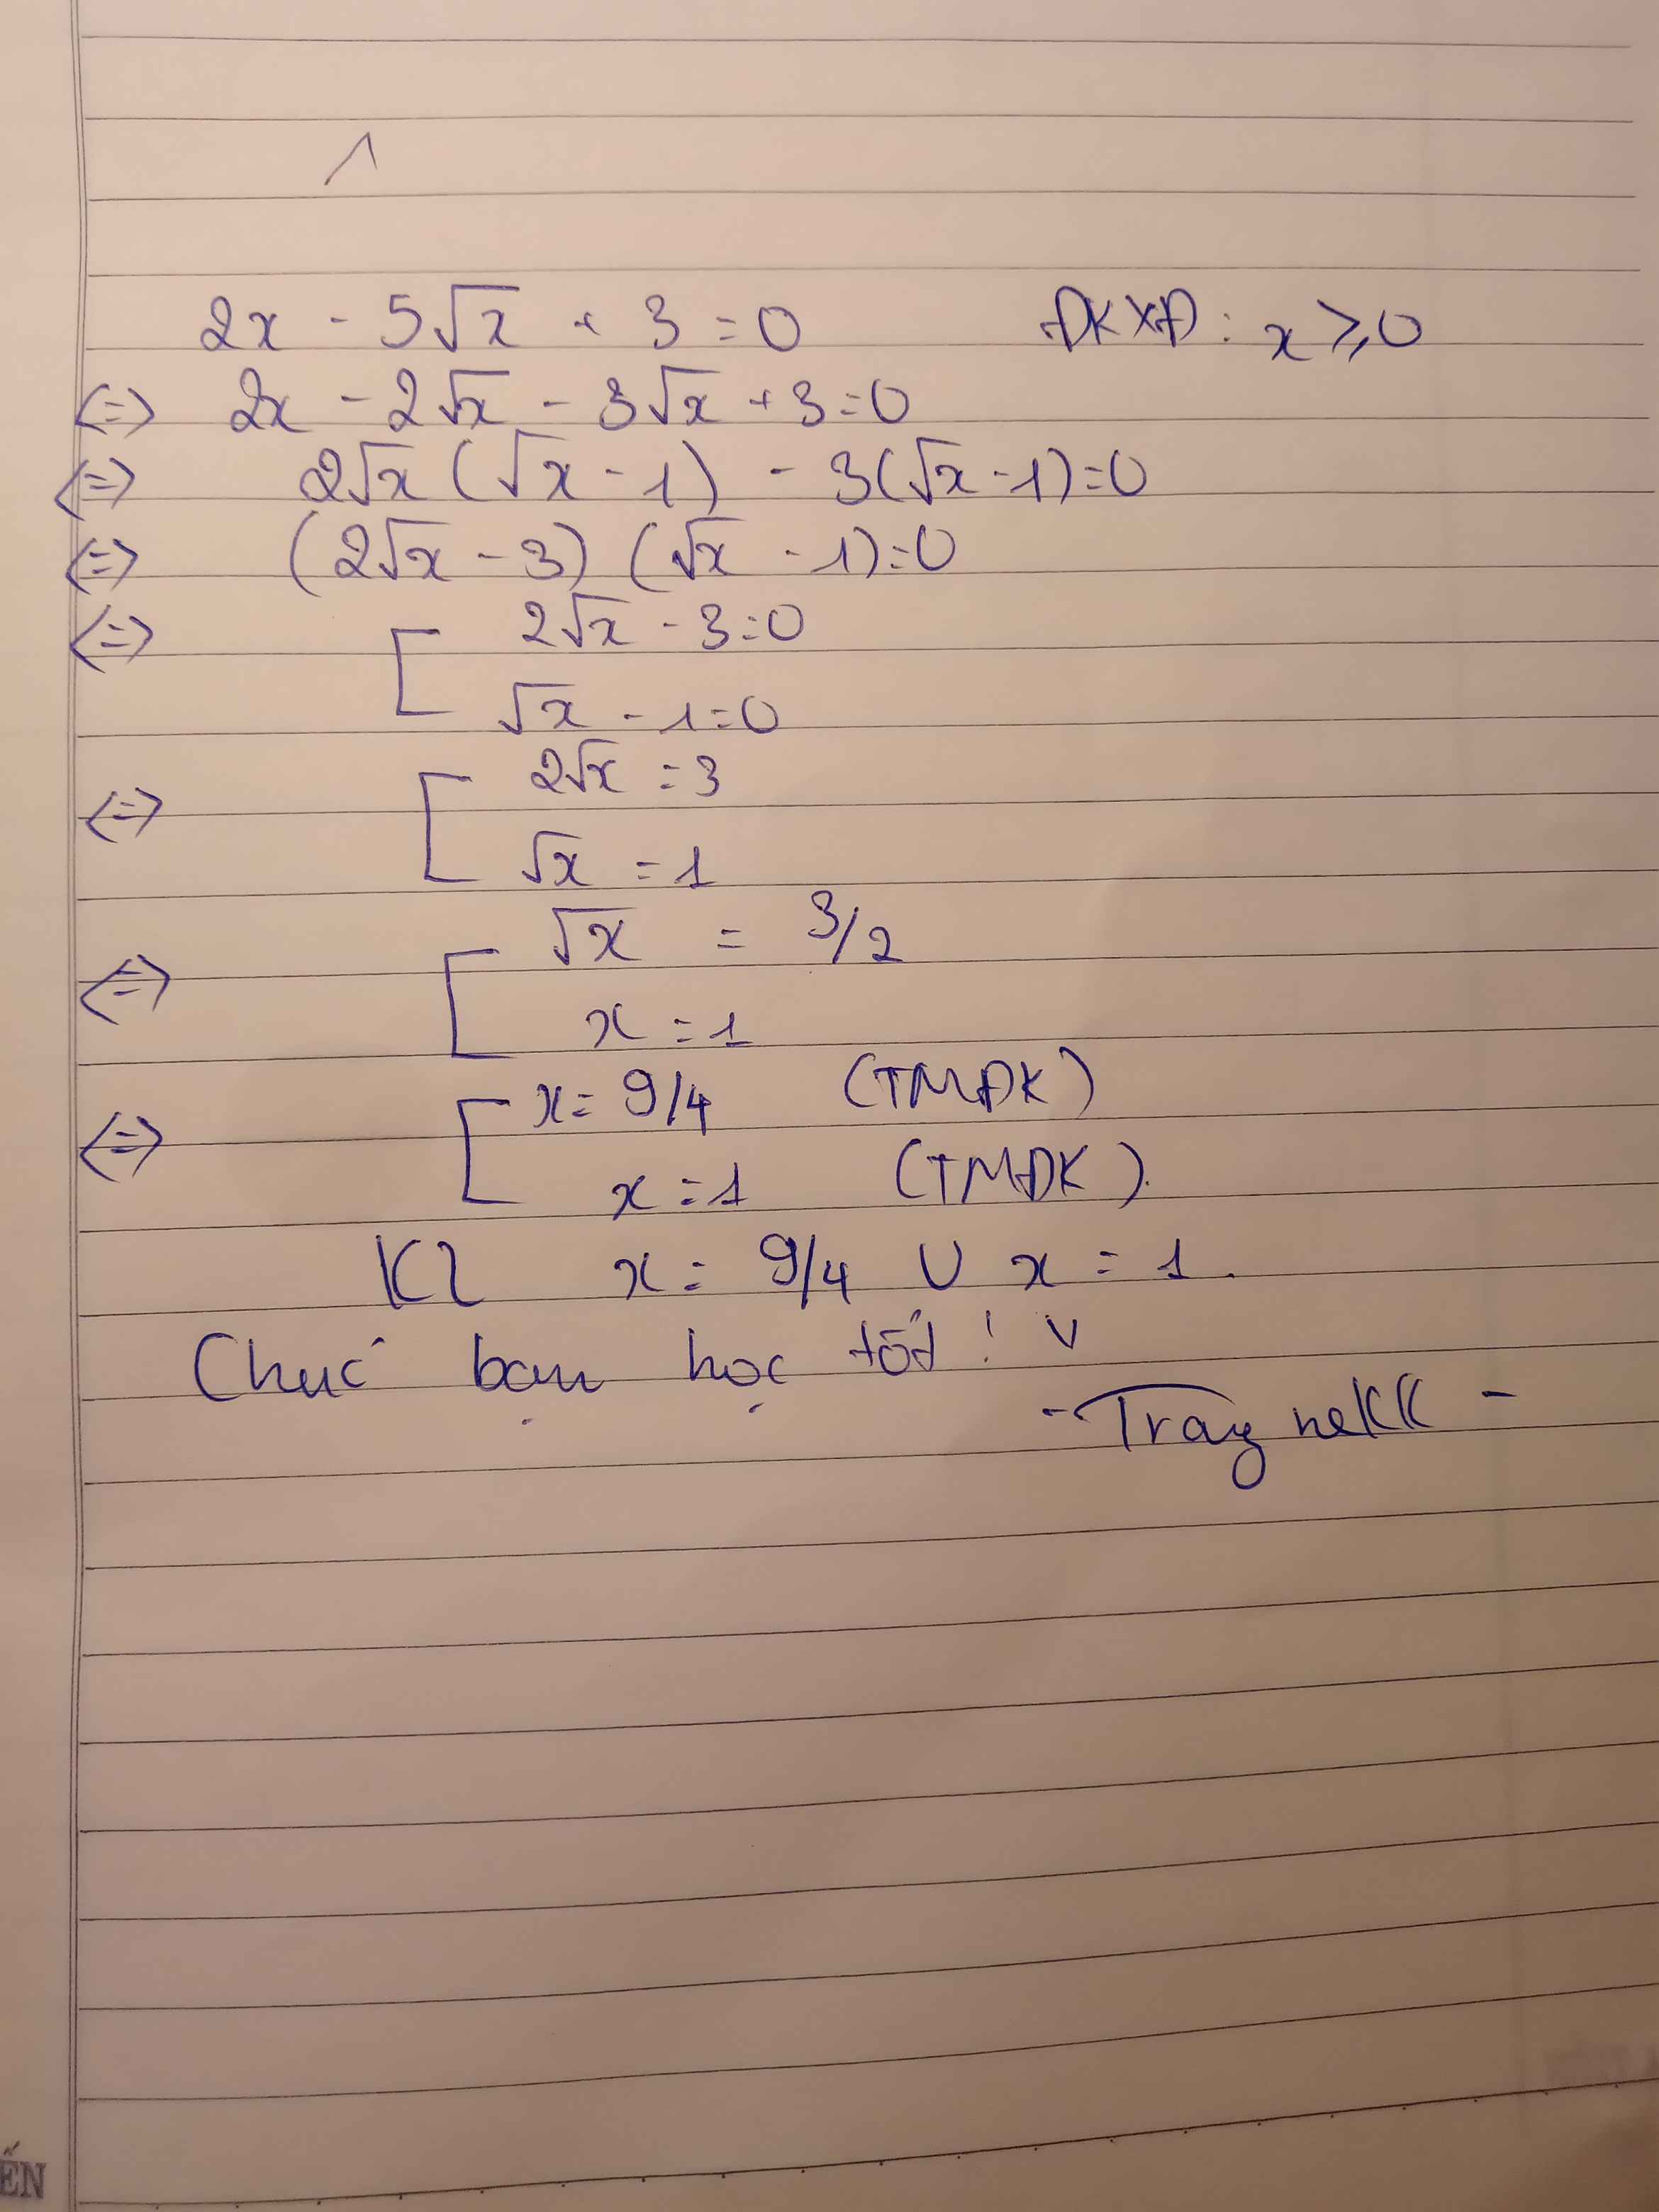 2x - 5√x + 3 = 0 ĐKXĐ: x ⩾ 0
<=> 2x - 2√x - 3√x + 3 = 0
<=> 2√x (√x - 1) - 3(√x - 1) = 0
<=> (2√x - 3) (√x - 1) = 0
<=> [ 2√x - 3 = 0
√x - 1 = 0
<=> [ 2√x = 3
√x = 1
<=> [ √x = 3/2
x = 1
<=> [ x = 9/4 (TMĐK)
x = 1 (TMĐK).
Kl x = 9/4 U x = 1.
Chúc bạn học tốt ! v
- Trag nekk -
ẾN